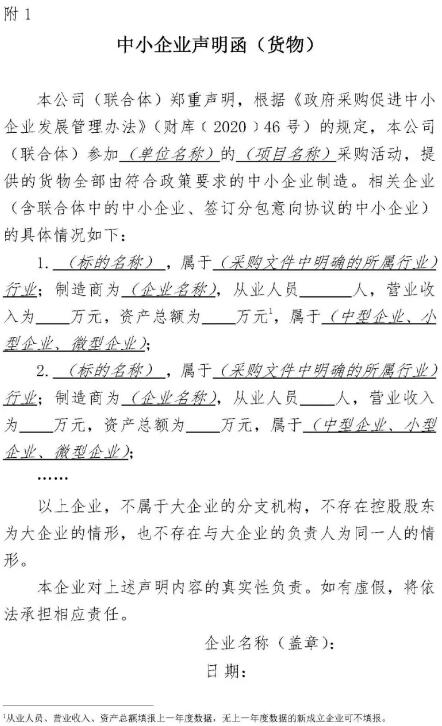 附 1
中小企业声明函（货物）
本公司（联合体）郑重声明，根据《政府采购促进中小
企业发展管理办法》（财库﹝2020﹞46 号）的规定，本公司
（联合体）参加（单位名称）的（项目名称）采购活动，提
供的货物全部由符合政策要求的中小企业制造。相关企业
（含联合体中的中小企业、签订分包意向协议的中小企业）
的具体情况如下：
1. （标的名称），属于（采购文件中明确的所属行业）
行业；制造商为（企业名称），从业人员______人，营业收
入为____万元，资产总额为____万元¹，属于（中型企业、小
型企业、微型企业）；
2. （标的名称），属于（采购文件中明确的所属行业）
行业；制造商为（企业名称），从业人员____人，营业收入
为____万元，资产总额为____万元，属于（中型企业、小型
企业、微型企业）；
……
以上企业，不属于大企业的分支机构，不存在控股股东
为大企业的情形，也不存在与大企业的负责人为同一人的情
形。
本企业对上述声明内容的真实性负责。如有虚假，将依
法承担相应责任。
企业名称（盖章）：
日 期：
¹从业人员、营业收入、资产总额填报上一年度数据，无上一年度数据的新成立企业可不填报。